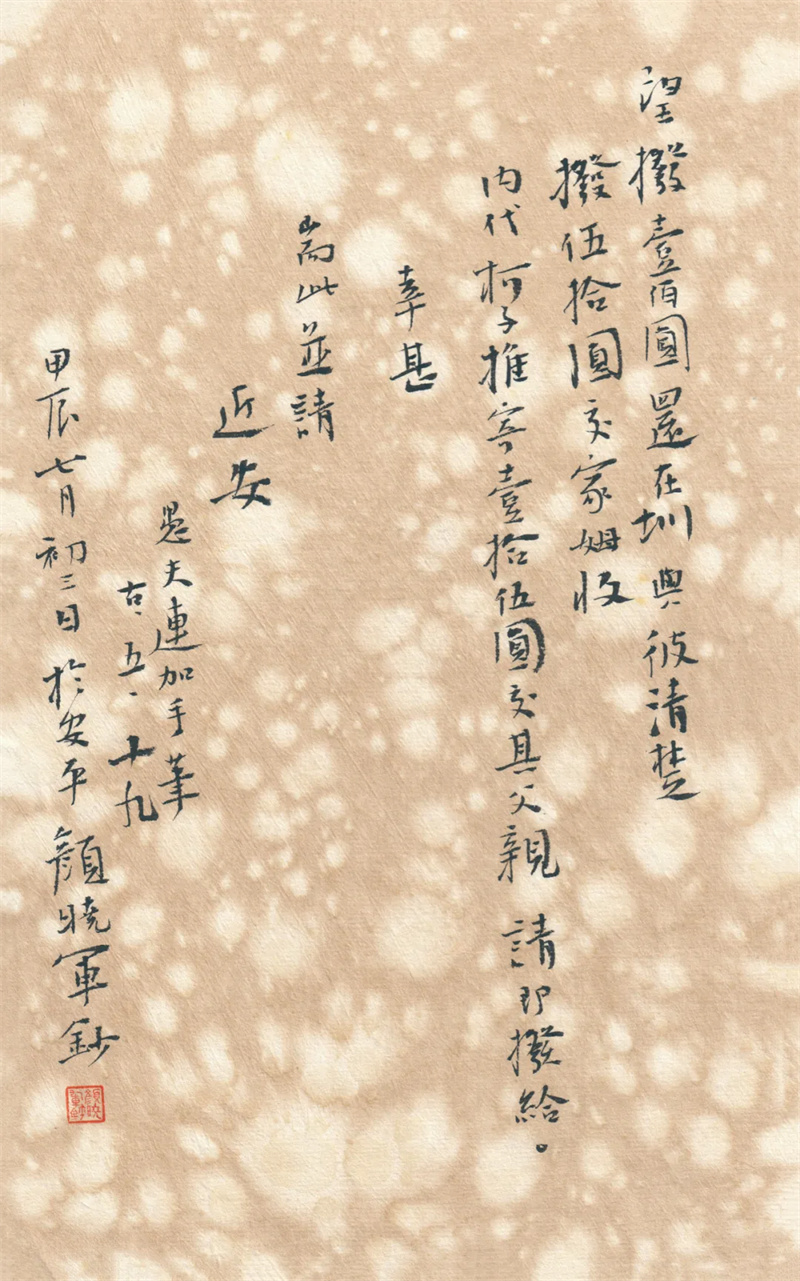 望撥壹佰圓還在圳與彼清楚
撥伍拾圓交家姆收
内代柯子推寄壹拾伍圓交其父親請即撥給。
幸甚
耑此並請
近安
愚夫連加手筆
古·五·十九
甲辰七月初三日於安平顏曉軍鈔